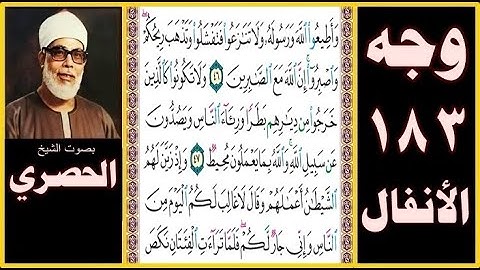 وجه
١٨٣
الأنفال
وَأَطِيعُوا۟ ٱللَّهَ وَرَسُولَهُۥ وَلَا تَنَـٰزَعُوا۟ فَتَفْشَلُوا۟ وَتَذْهَبَ رِيحُكُمْ
وَٱصْبِرُوٓا۟ إِنَّ ٱللَّهَ مَعَ ٱلصَّـٰبِرِينَ ٤٦ وَلَا تَكُونُوا۟ كَٱلَّذِينَ
خَرَجُوا۟ مِن دِيَـٰرِهِم بَطَرًا وَرِئَآءَ ٱلنَّاسِ وَيَصُدُّونَ
عَن سَبِيلِ ٱللَّهِ وَٱللَّهُ بِمَا يَعْمَلُونَ مُحِيطٌ ٤٧ وَإِذْ زَيَّنَ لَهُمُ
ٱلشَّيْطَـٰنُ أَعْمَـٰلَهُمْ وَقَالَ لَا غَالِبَ لَكُمُ ٱلْيَوْمَ مِنَ
ٱلنَّاسِ وَإِنِّى جَارٌ لَّكُمْ فَلَمَّا تَرَآءَتِ ٱلْفِئَتَانِ نَكَصَ
بصوت الشيخ
الحصري